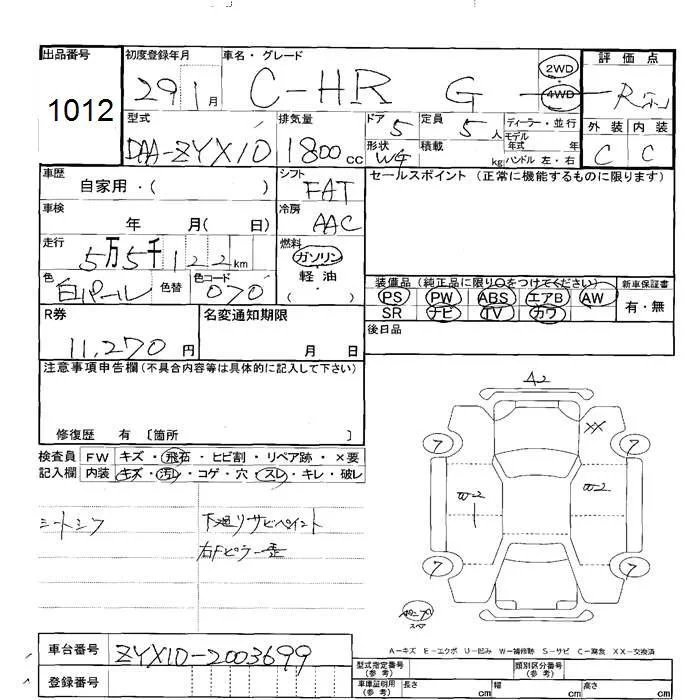 出品番号 初度登録年月 車名・グレード 2WD 評価点
1012 29 1月 C-HR G 4WD R
型式 排気量 ドア 定員 ディーラー・並行 外装 内装
DAA-ZYX10 1800cc 5 5人 モデル年式 年 C C
形状 積載 kg ハンドル 左・右
車歴 シフト セールスポイント (正常に機能するものに限ります)
自家用・( ) FAT
車検 冷房
年 月( 日) AAC
走行 燃料
5万5千122km ガソリン
色 色替 色コード 軽油
白パール 070 ( ・ )
装備品(純正品に限り○をつけてください) 新車保証書
PS PW ABS エアB AW 有・無
SR ナビ TV カワ
R券 名変通知期限 後日品
11,270円 月 日
注意事項申告欄(不具合内容等は具体的に記入して下さい)
修復歴 有 〔箇所 〕
検査員 FW キズ・飛石・ヒビ割・リペア跡・×要
記入欄 内装 キズ・汚れ・コゲ・穴・スレ・キレ・破レ
シートシワ 下廻リサビペイント
右Fピラー歪
A2
XX
7 7
W-2 W-2
7 7
スペア
A-キズ E-エクボ U-凹み W-補修跡 S-サビ C-腐食 XX-交換済
車台番号 ZYX10-2003699
型式指定番号(参考) 類別区分番号(参考)
登録番号 車庫証明用(参考) 長さ cm 幅 cm 高さ cm